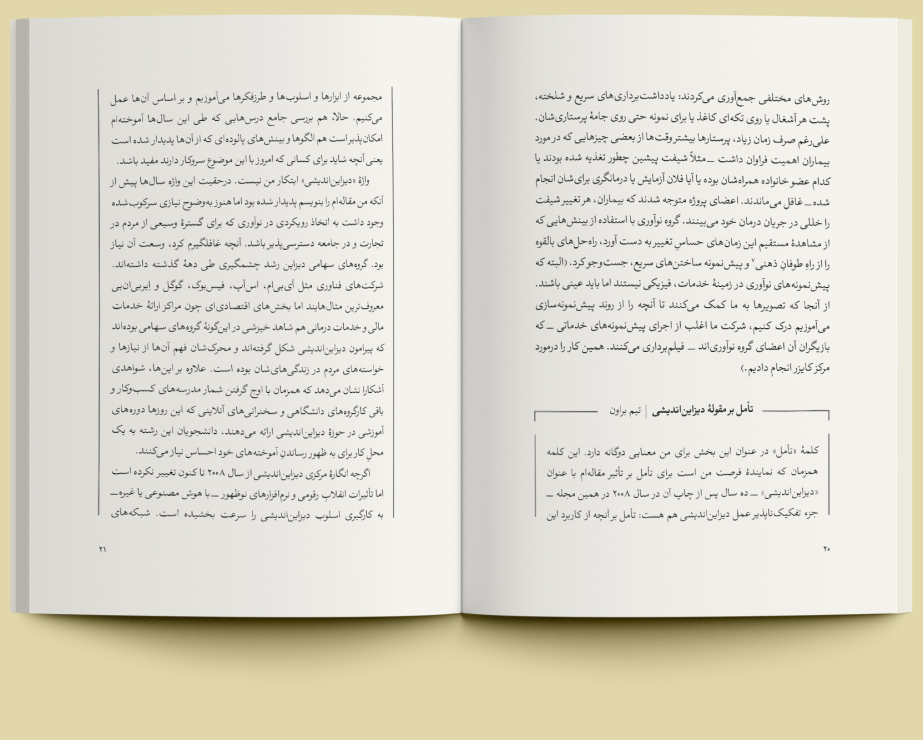 روش‌های مختلفی جمع‌آوری می‌کردند: یادداشت‌برداری‌های سریع و شلخته،
پشت هر آشغال یا روی تکه‌ای کاغذ یا برای نمونه حتی روی جامهٔ پرستاری‌شان.
علی‌رغم صرف زمان زیاد، پرستارها بیشتر وقت‌ها از بعضی چیزهایی که در مورد
بیماران اهمیت فراوان داشت ـــ مثلاً شیفت پیشین چطور تغذیه شده بودند یا
کدام عضو خانواده همراه‌شان بوده یا آیا فلان آزمایش یا درمانگری برای‌شان انجام
شده ـــ غافل می‌ماندند. اعضای پروژه متوجه شدند که بیماران، هر تغییر شیفت
را خللی در جریان درمان خود می‌بینند. گروه نوآوری با استفاده از بینش‌هایی که
از مشاهدهٔ مستقیم این زمان‌های حساسِ تغییر به دست آورد، راه‌حل‌های بالقوه
را از راهِ طوفانِ ذهنی۷ و پیش‌نمونه ساختن‌های سریع، جست‌وجو کرد. (البته که
پیش‌نمونه‌های نوآوری در زمینهٔ خدمات، فیزیکی نیستند اما باید عینی باشند.
از آنجا که تصویرها به ما کمک می‌کنند تا آنچه را از روند پیش‌نمونه‌سازی
می‌آموزیم درک کنیم، شرکت ما اغلب از اجرای پیش‌نمونه‌های خدماتی ـــ که
بازیگران آن اعضای گروه نوآوری‌اند ـــ فیلم‌برداری می‌کنند. همین کار را درمورد
مرکز کایزر انجام دادیم.)
تأمل بر مقولهٔ دیزاین‌اندیشی | تیم براون
کلمهٔ «تأمل» در عنوان این بخش برای من معنایی دوگانه دارد. این کلمه
همزمان که نمایندهٔ فرصت من است برای تأمل بر تأثیر مقاله‌ام با عنوان
«دیزاین‌اندیشی» ـــ ده سال پس از چاپ آن در سال ۲۰۰۸ در همین مجله ـــ
جزء تفکیک‌ناپذیر عمل دیزاین‌اندیشی هم هست: تأمل بر آنچه از کاربرد این
۲۰
مجموعه از ابزارها و اسلوب‌ها و طرزفکرها می‌آموزیم و بر اساس آن‌ها عمل
می‌کنیم. حالا، هم بررسی جامع درس‌هایی که طی این سال‌ها آموخته‌ام
امکان‌پذیر است هم الگوها و بینش‌های پالوده‌ای که از آن‌ها پدیدار شده است
یعنی آنچه شاید برای کسانی که امروز با این موضوع سروکار دارند مفید باشد.
واژهٔ «دیزاین‌اندیشی» ابتکار من نیست. درحقیت این واژه سال‌ها پیش از
آنکه من مقاله‌ام را بنویسم پدیدار شده بود اما هنوز به‌وضوح نیازی سرکوب‌شده
وجود داشت به اتخاذ رویکردی در نوآوری که برای گسترهٔ وسیعی از مردم در
تجارت و در جامعه دسترسی‌پذیر باشد. آنچه غافلگیرم کرد، وسعت آن نیاز
بود. گروه‌های سهامی دیزاین رشد چشمگیری طی دههٔ گذشته داشته‌اند.
شرکت‌های فناوری مثل آی‌بی‌ام، اس‌آپ، فیس‌بوک، گوگل و اِیربی‌ان‌بی
معروف‌ترین مثال‌هایند اما بخش‌های اقتصادی‌ای چون مراکز ارائهٔ خدمات
مالی و خدمات درمانی هم شاهد خیزشی در این‌گونهٔ گروه‌های سهامی بوده‌اند
که پیرامون دیزاین‌اندیشی شکل گرفته‌اند و محرک‌شان فهم آن‌ها از نیازها و
خواسته‌های مردم در زندگی‌های‌شان بوده است. علاوه بر این‌ها، شواهدی
آشکارا نشان می‌دهد که همزمان با اوج گرفتن شمار مدرسه‌های کسب‌وکار و
باقی کارگروه‌های دانشگاهی و سخنرانی‌های آنلاینی که این روزها دوره‌های
آموزشی در حوزهٔ دیزاین‌اندیشی ارائه می‌دهند، دانشجویان این رشته به یک
محلِ کار برای به ظهور رساندنِ آموخته‌های خود احساس نیاز می‌کنند.
اگرچه انگارهٔ مرکزی دیزاین‌اندیشی از سال ۲۰۰۸ تا کنون تغییر نکرده است
اما تأثیرات انقلاب رقومی و نرم‌افزارهای نوظهور ـــ با هوش مصنوعی یا غیره ـــ
به کارگیری اسلوب دیزاین‌اندیشی را سرعت بخشیده است. شبکه‌های
۲۱